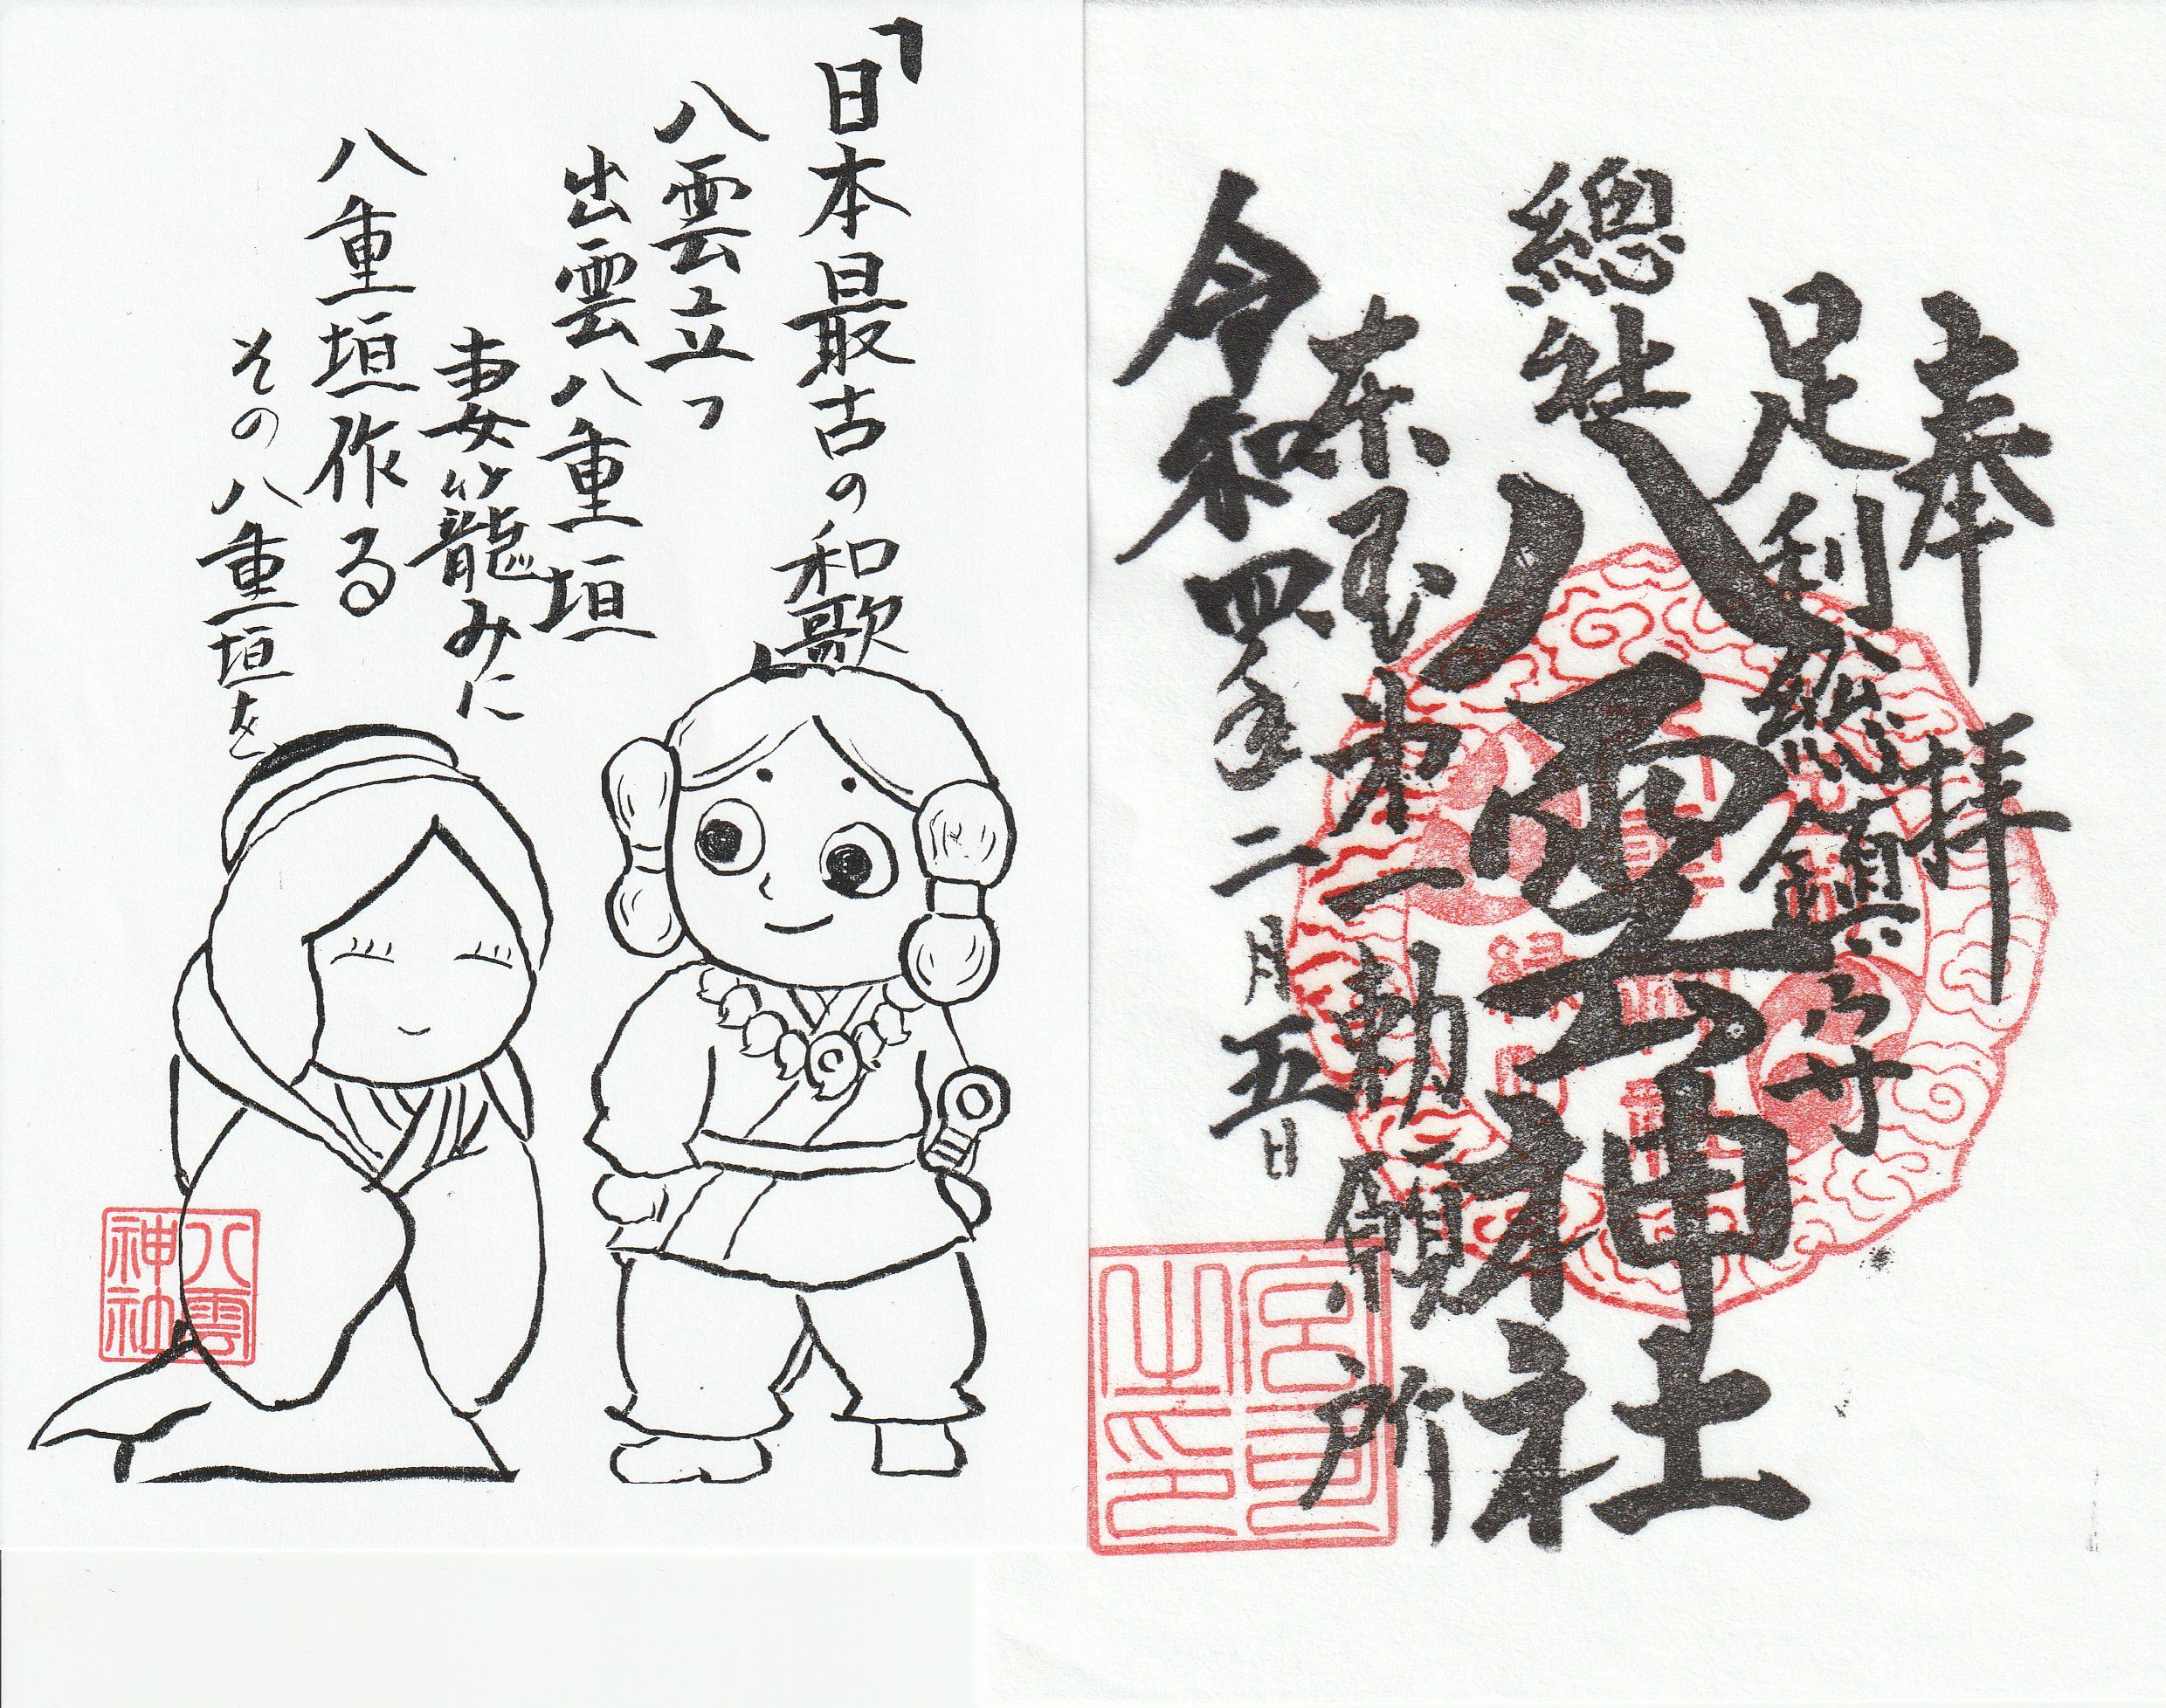 奉拝
足利総鎮守
總社
八雲神社
東国第一勅願所
令和四年二月五日
宮司
之印
「日本最古の和歌」
八雲立つ
出雲八重垣
妻籠みに
八重垣作る
その八重垣を
八雲
神社